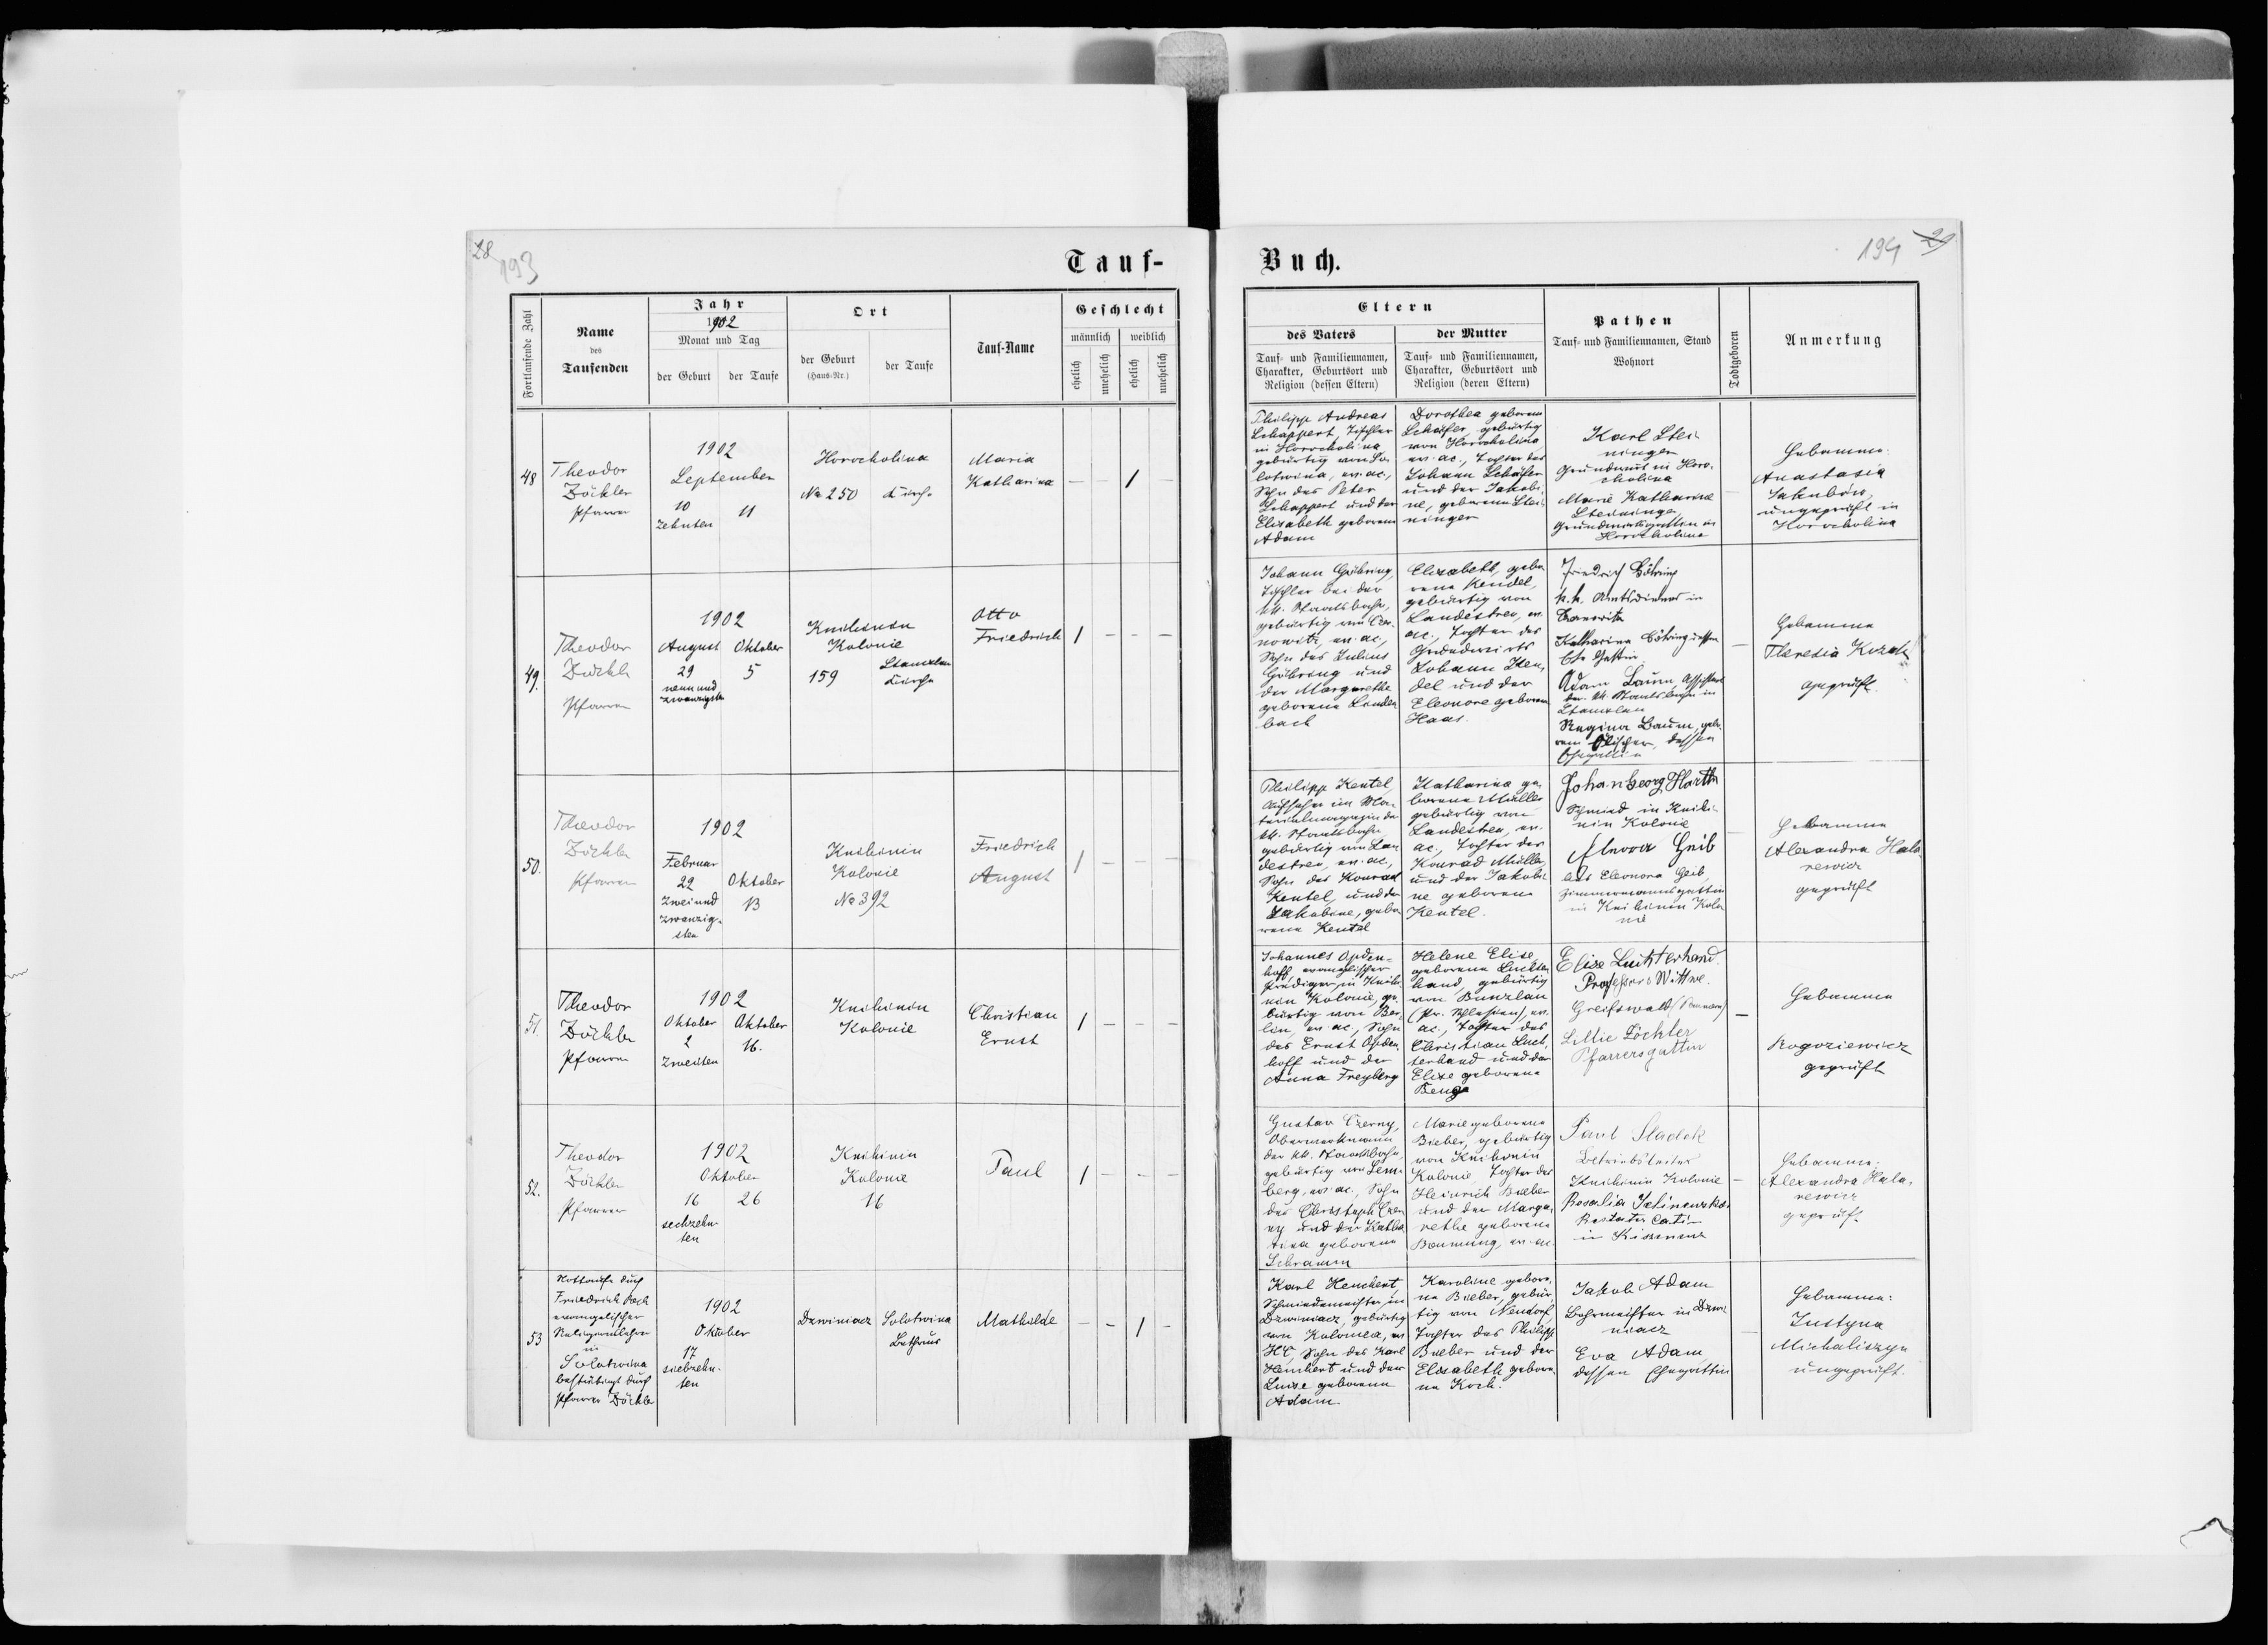 28
193
Tauf-
Fortlaufende Zahl
Name
des
Taufenden
Jahr
1902
Monat und Tag
der Geburt
der Taufe
Ort
der Geburt
(Haus-Nr.)
der Taufe
Tauf-Name
Geschlecht
männlich
weiblich
ehelich
unehelich
ehelich
unehelich
48
Theodor
Zöckler
Pfarrer
1902
September
10
zehnten
11
Horocholina
No 250
Kirche
Maria
Katharina
— — 1 —
49.
Theodor
Zöckler
Pfarrer
1902
August
29
neun und
zwanzigsten
Oktober
5
Knihinin
Kolonie
159
Stanislau
Kirche
Otto
Friedrich
1 — — —
50.
Theodor
Zöckler
Pfarrer
1902
Februar
22
zwei und
zwanzig-
sten
Oktober
13
Knihinin
Kolonie
No 392
Friedrich
August
1 — — —
51
Theodor
Zöckler
Pfarrer
1902
Oktober
2
zweiten
Oktober
16.
Knihinin
Kolonie
Christian
Ernst
1 — — —
52.
Theodor
Zöckler
Pfarrer
1902
Oktober
16
26
sechzehn-
ten
Knihinin
Kolonie
16
Paul
1 — — —
53
Nottaufe durch
Friedrich
evangelischer
Religionslehrer
in
Solotwina
bestätigt durch
Pfarrer Zöckler
1902
Oktober
17
siebzehn-
ten
Dzwiniacz
Solotwina
Bethaus
Mathilde
— — 1 —
Buch.
194
29
Eltern
des Vaters
Tauf- und Familiennamen,
Charakter, Geburtsort und
Religion (dessen Eltern)
der Mutter
Tauf- und Familiennamen,
Charakter, Geburtsort und
Religion (deren Eltern)
Pathen
Tauf- und Familiennamen, Stand
Wohnort
Todtgeboren
Anmerkung
Philipp Andreas
Schappert, Tischler
in Horocholina
gebürtig von So-
lotwina, ev. ac.,
Sohn des Peter
Schappert und der
Elisabeth geborene
Adam
Dorothea geborene
Schäfer, gebürtig
von Horocholina
ev. ac., Tochter des
Johann Schäfer
und der Jakobi-
ne, geborene Stei-
ninger
Karl Stei-
ninger
Grundwirt in Horo-
cholina
Marie Katharine
Steininger,
Grundwirtsgattin in
Horocholina
Hebamme:
Anastasia
ungeprüft in
Horocholina
Johann Göhring,
Tischler bei der
kk. Staatsbahn,
gebürtig von Czer-
nowitz, ev. ac.,
Sohn des Julius
Göhring und
der Margarethe
geborene Lauden-
bach
Elisabeth, gebo-
rene Kendel,
gebürtig von
Landestreu, ev.
ac., Tochter des
Grundwirts
Johann Ken-
del und der
Eleonore geborene
Haas.
Friedrich Göhring
k.k. Amtsdiener in
Czernowitz
Katharina Göhring dessen
Adam Baum
der kk. Staatsbahn in
Stanislau
Regina Baum, gebo-
rene dessen
Ehegattin
Hebamme
Theresia
geprüft.
Philipp Kentel,
Aufseher im Ma-
terialmagazin der
kk. Staatsbahn
gebürtig von Lan-
destreu, ev. ac.,
Sohn des Konrad
Kentel, und der
Jakobine, gebo-
rene Kentel
Katharina ge-
borene Müller
gebürtig von
Landestreu, ev.
ac., Tochter des
Konrad Müller,
und der Jakobi-
ne geborene
Kentel.
Johan Georg Harth
Schmied in Knihi-
nin Kolonie
Geib
Eleonora Geib,
Zimmermannsgattin
in Knihinin Kolo-
nie
Hebamme
Alexandra Hala-
rewicz
geprüft
Johannes Opden-
hoff, evangelischer
Prediger in Knihi-
nin Kolonie, ge-
bürtig von Ber-
lin, ev. ac., Sohn
des Ernst Opden-
hoff und der
Anna Freyberg
Helene Elise
geborene Luchter-
hand, gebürtig
von Bunzlau
(Pr. Schlesien), ev.
ac., Tochter des
Christian Luch-
terhand und der
Elise geborene
Elise Luchterhand.
Professors Wittwe.
Greifswald (Pommern)
Lillie Zöckler
Pfarrersgattin
Hebamme
Rogoziewicz
geprüft
Gustav Czerny,
Oberwerkmann
der kk. Staatsbahn
gebürtig von Lem-
berg, ev. ac., Sohn
des Christoph Czer-
ny und der Katha-
rina geborene
Schramm
Marie geborene
Bieber, gebürtig
von Knihinin
Kolonie, Tochter des
Heinrich Bieber
und der Marga-
rethe geborene
ev. ac.
Paul Sladek
Betriebsleiter
Knihinin Kolonie
Rosalia
in
Hebamme:
Alexandra Hala-
rewicz
geprüft
Karl Henchert,
Schmiedemeister in
Dzwiniacz, gebürtig
von Kolomea, ev.
HC, Sohn des Karl
Henchert und der
Luise geborene
Adam.
Karoline gebore-
ne Bieber, gebür-
tig von Neudorf,
Tochter des Philipp
Bieber und der
Elisabeth gebore-
ne Koch.
Jakob Adam
Bohrmeister in Dzwi-
niacz
Eva Adam
dessen Ehegattin
Hebamme:
Justyna
Michaliszyn
ungeprüft.